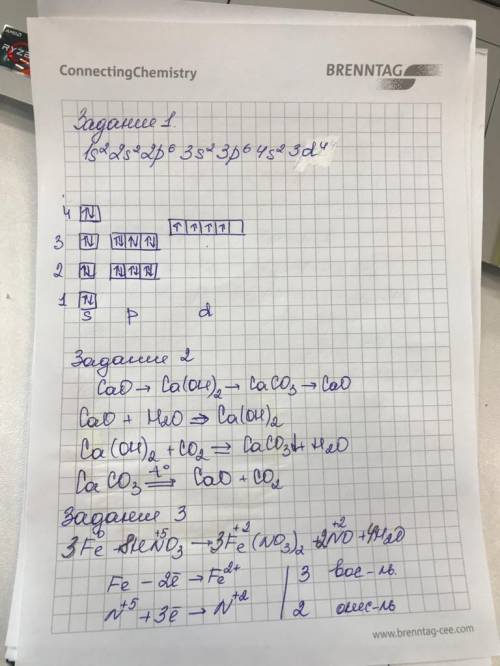 AMD
RYZE
ConnectingChemistry
BRENNTAG
Задание 1.
1s² 2s² 2p⁶ 3s² 3p⁶ 4s² 3d⁴
4 ↑↓
↑ ↑ ↑ ↑
3 ↑↓ ↑↓ ↑↓ ↑↓
2 ↑↓ ↑↓ ↑↓ ↑↓
1 ↑↓
s p d
Задание 2
CaO → Ca(OH)₂ → CaCO₃ → CaO
CaO + H₂O ⇒ Ca(OH)₂
Ca(OH)₂ + CO₂ ⇒ CaCO₃↓ + H₂O
CaCO₃ =t°⇒ CaO + CO₂
Задание 3
3Fe⁰ + 8HN⁺⁵O₃ → 3Fe⁺²(NO₃)₂ + 2N⁺²O + 4H₂O
Fe - 2ē → Fe²⁺ | 3 вос-ль.
N⁺⁵ + 3ē → N⁺² | 2 окис-ль
www.brenntag-cee.com